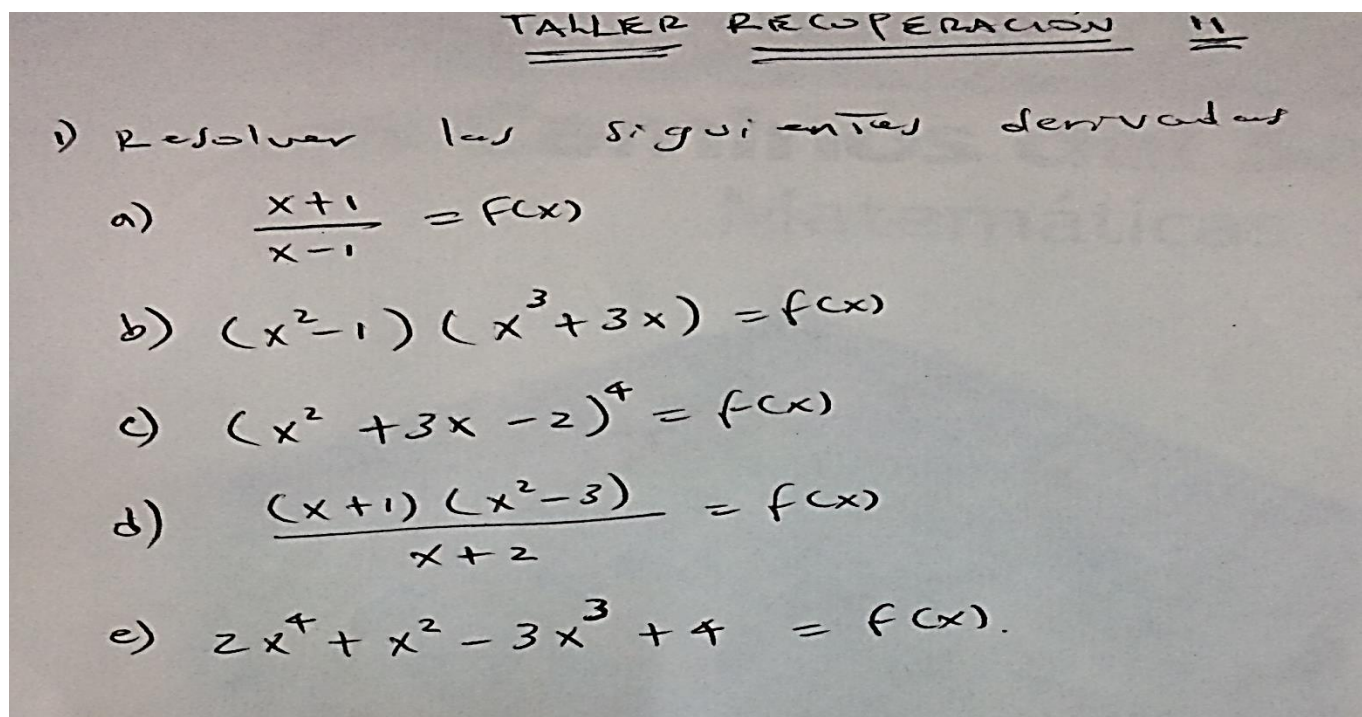 TALLER RECUPERACIÓN II
1) Resolver las siguientes derivadas
a) \frac{x+1}{x-1} = f(x)
b) (x²-1)(x³+3x) = f(x)
c) (x² +3x -2)⁴ = f(x)
d) \frac{(x+1)(x²-3)}{x+2} = f(x)
e) 2x⁴ + x² - 3x³ + 4 = f(x).